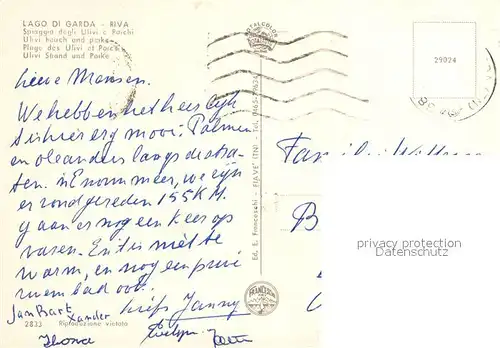 LAGO DI GARDA - RIVA
Spiaggia degli Ulivi e Parchi
Ulivi beach and parks
Plage des Ulivi et Parcs
Ulivi Strand und Parke
Lieve Mensen.
We hebben het heerlijk
't is hier erg mooi. Palmen
en oleanders langs de stra-
ten. 'n Enorm meer, we zijn
er rond gereden 155 KM.
gaan er nog een keer op
varen. En 't is niet te
warm, en nog een privé
zwembad ook.
Liefs Janny
Jan Bart
Xander
Ilona
Evelyn
2833 Riproduzione vietata
Ed. E. Franceschi - FIAVE' (TN) - Tel. 0465-
29024
Familie
B
privacy protection
Datenschutz